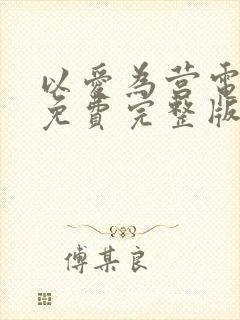 以愛為营電
免費完整版
傅某良